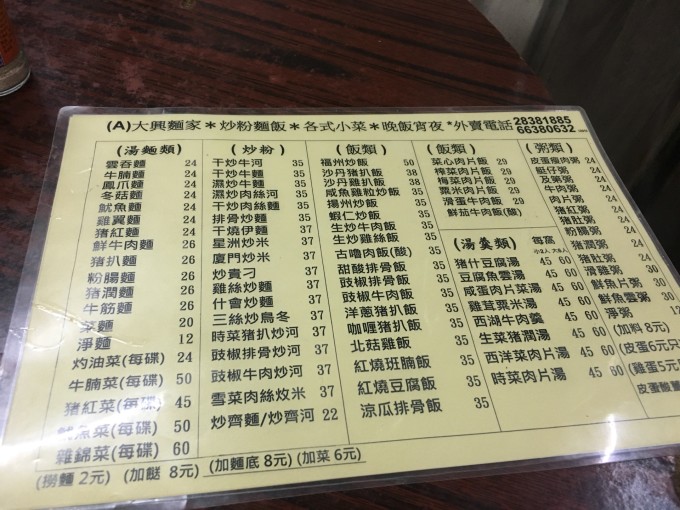 (A)大興麵家＊炒粉麵飯＊各式小菜＊晚飯宵夜*外賣電話 28381885
66380632
(湯麵類)
雲吞麵 24
牛腩麵 24
鳳爪麵 24
冬菇麵 24
魷魚麵 24
雞翼麵 24
猪紅麵 24
鮮牛肉麵 26
猪扒麵 26
粉腸麵 26
猪潤麵 26
牛筋麵 26
菜麵 20
淨麵 12
灼油菜(每碟) 24
牛腩菜(每碟) 50
猪紅菜(每碟) 45
魷魚菜(每碟) 50
雜錦菜(每碟) 60
(炒粉)
干炒牛河 35
干炒牛麵 35
濕炒牛河 35
濕炒肉絲河 35
干炒肉絲麵 35
排骨炒麵 35
干燒伊麵 35
星洲炒米 37
廈門炒米 37
炒貴刁 37
雞絲炒麵 37
什會炒麵 37
三絲炒烏冬 37
時菜猪扒炒河 37
豉椒排骨炒河 37
豉椒牛肉炒河 37
雪菜肉絲炆米 37
炒齊麵/炒齊河 22
(飯類)
福州炒飯 50
沙丹猪扒飯 38
沙丹雞扒飯 38
咸魚雞粒炒飯 38
揚州炒飯 35
蝦仁炒飯 35
生炒牛肉飯 35
生炒雞絲飯 35
古嚕肉飯(酸) 35
甜酸排骨飯 35
豉椒排骨飯 35
豉椒牛肉飯 35
洋蔥猪扒飯 35
咖喱猪扒飯 35
北菇雞飯 35
紅燒班腩飯 35
紅燒豆腐飯 35
涼瓜排骨飯 35
(飯類)
菜心肉片飯 29
榨菜肉片飯 29
梅菜肉片飯 29
粟米肉片飯 29
滑蛋牛肉飯 29
鮮茄牛肉飯(酸)
(湯羹類) 每窩
小2人 大4人
猪什豆腐湯 45 60
豆腐魚雲湯 45 60
咸蛋肉片菜湯 45 60
雞茸粟米湯 45 60
西湖牛肉羹 45 60
生菜猪潤湯 45 60
西洋菜肉片湯 45 60
時菜肉片湯 45 60
(粥類)
皮蛋瘦肉粥 24
艇仔粥 24
及第粥 24
牛肉粥 24
肉片粥 24
猪紅粥 24
猪肚粥 24
粉腸粥 24
猪潤粥 24
猪什粥 24
滑雞粥 30
鮮魚片粥 30
鮮魚雲粥 30
淨粥 12
(加料 8元)
(皮蛋6元
(雞蛋5元
皮蛋酸薑
(撈麵 2元) (加餸 8元) (加麵底 8元) (加菜 6元)